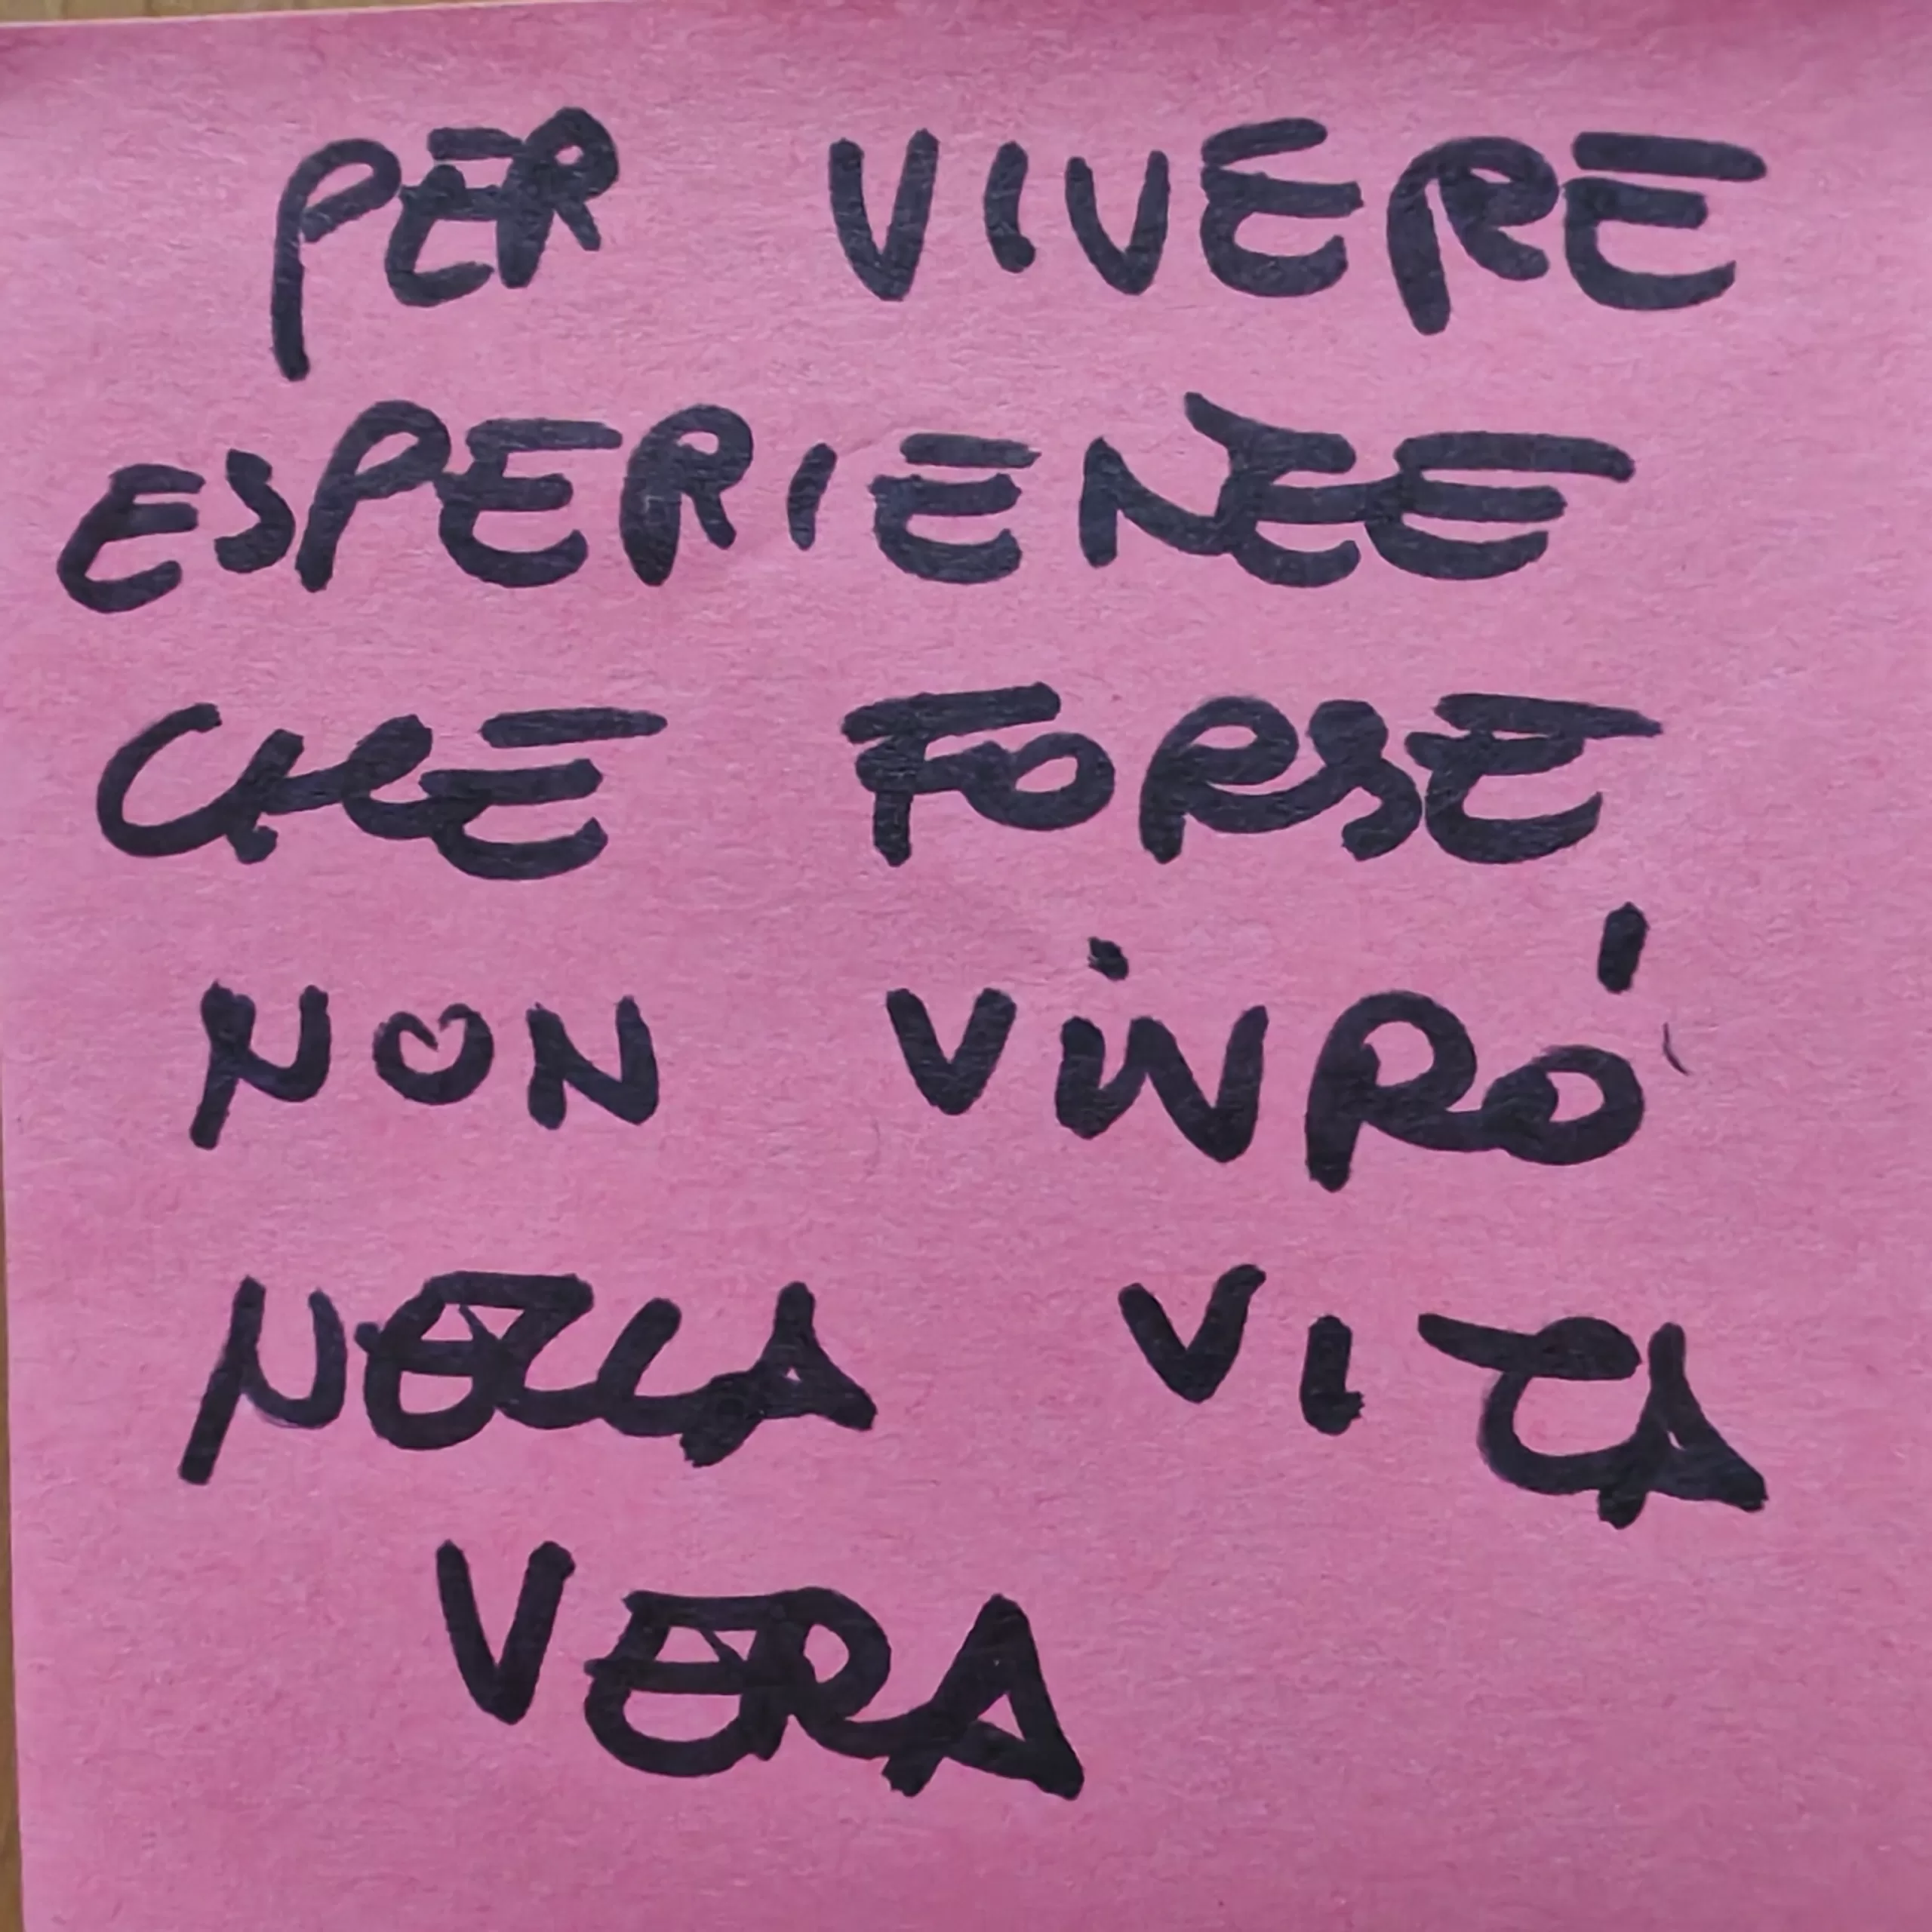 PER VIVERE
ESPERIENZE
CHE FORSE
NON VIVRÓ
NELLA VITA
VERA